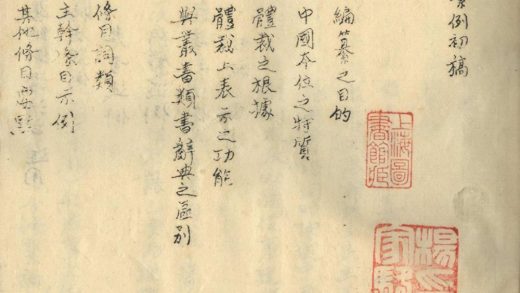 例初稿
編纂之目的
中國本位之特質
體裁之根據
體裁上表示之功能
與叢書類書辭典之區別
條目詞類
主幹条目示例
其他條目點
上海圖
書館藏
楊
家